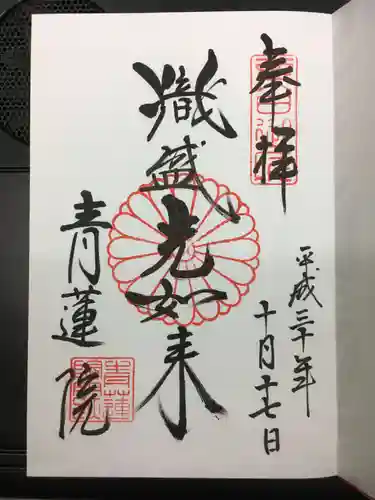 奉拝
平成三十年
十月十七日
熾盛光如来
青蓮院
青蓮